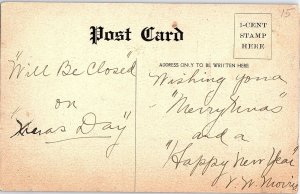 15
Post Card
1-CENT
STAMP
HERE
ADDRESS ONLY TO BE WRITTEN HERE
"Will Be Closed
on
"Xmas Day"
Wishing you a
"Merry Xmas"
and a
"Happy New Year"
V. W. Morris